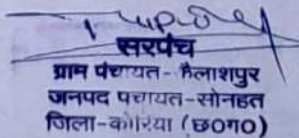 सरपंच
ग्राम पंचायत - कैलाशपुर
जनपद पंचायत-सोनहत
जिला-कोरिया (छ०ग०)